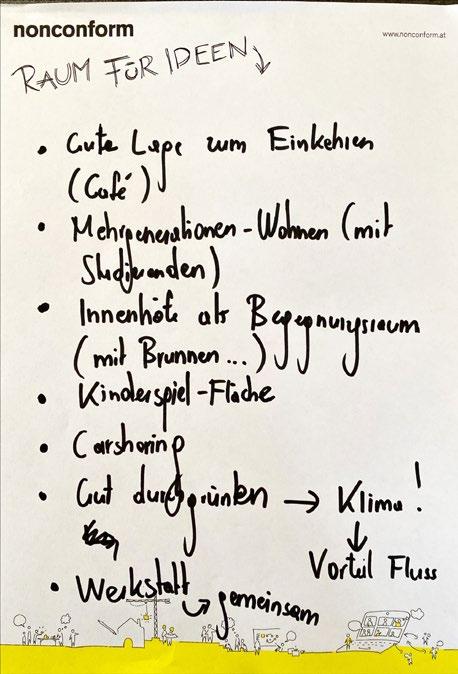 nonconform
www.nonconform.at
RAUM FÜR IDEEN
• Gute Lage zum Einkehren
(Café)
• Mehrgenerationen-Wohnen (mit
Studierenden)
• Innenhöfe als Begegnungsraum
(mit Brunnen...)
• Kinderspiel-Fläche
• Carsharing
• Gut durchgrünten → Klima!
↓
Vorteil Fluss
• Werkstatt → gemeinsam